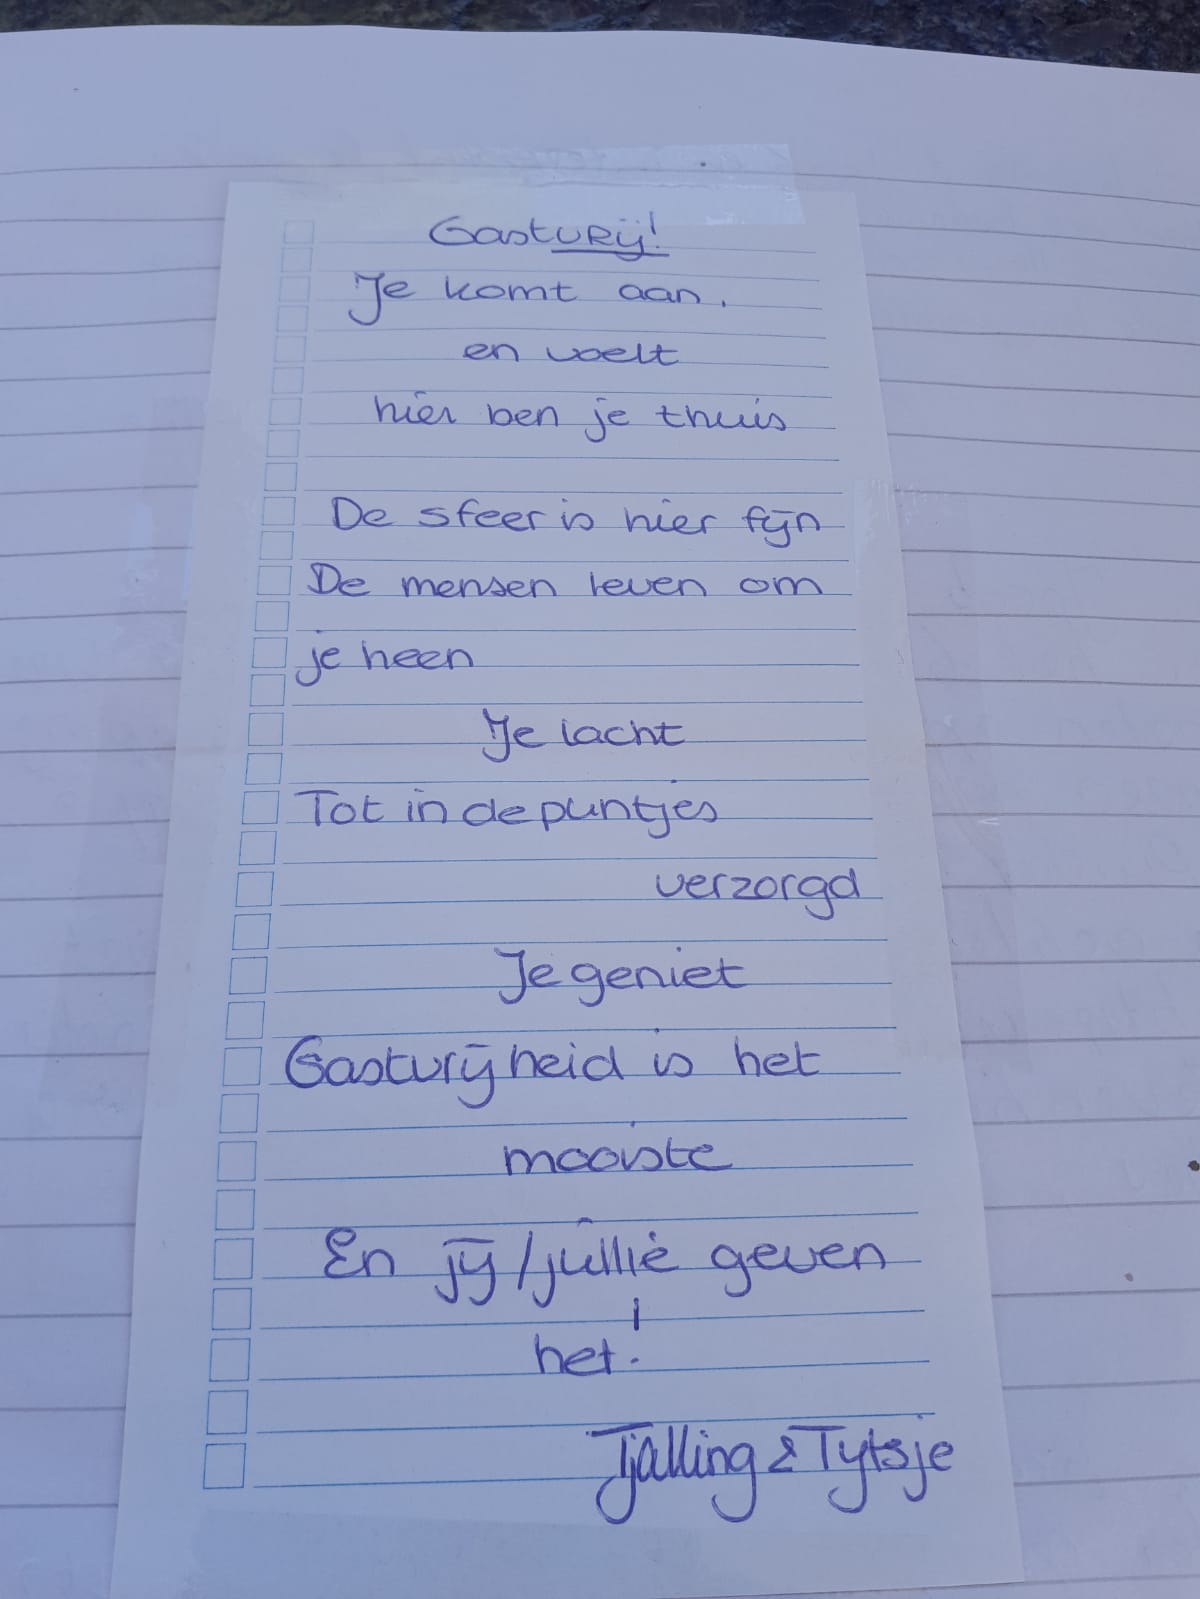 Gastvrij!
Je komt aan,
en voelt
hier ben je thuis
De sfeer is hier fijn
De mensen leven om
je heen
Je lacht
Tot in de puntjes
verzorgd
Je geniet
Gastvrijheid is het
mooiste
En jij/jullie geven
het!
Tjalling & Tytsje